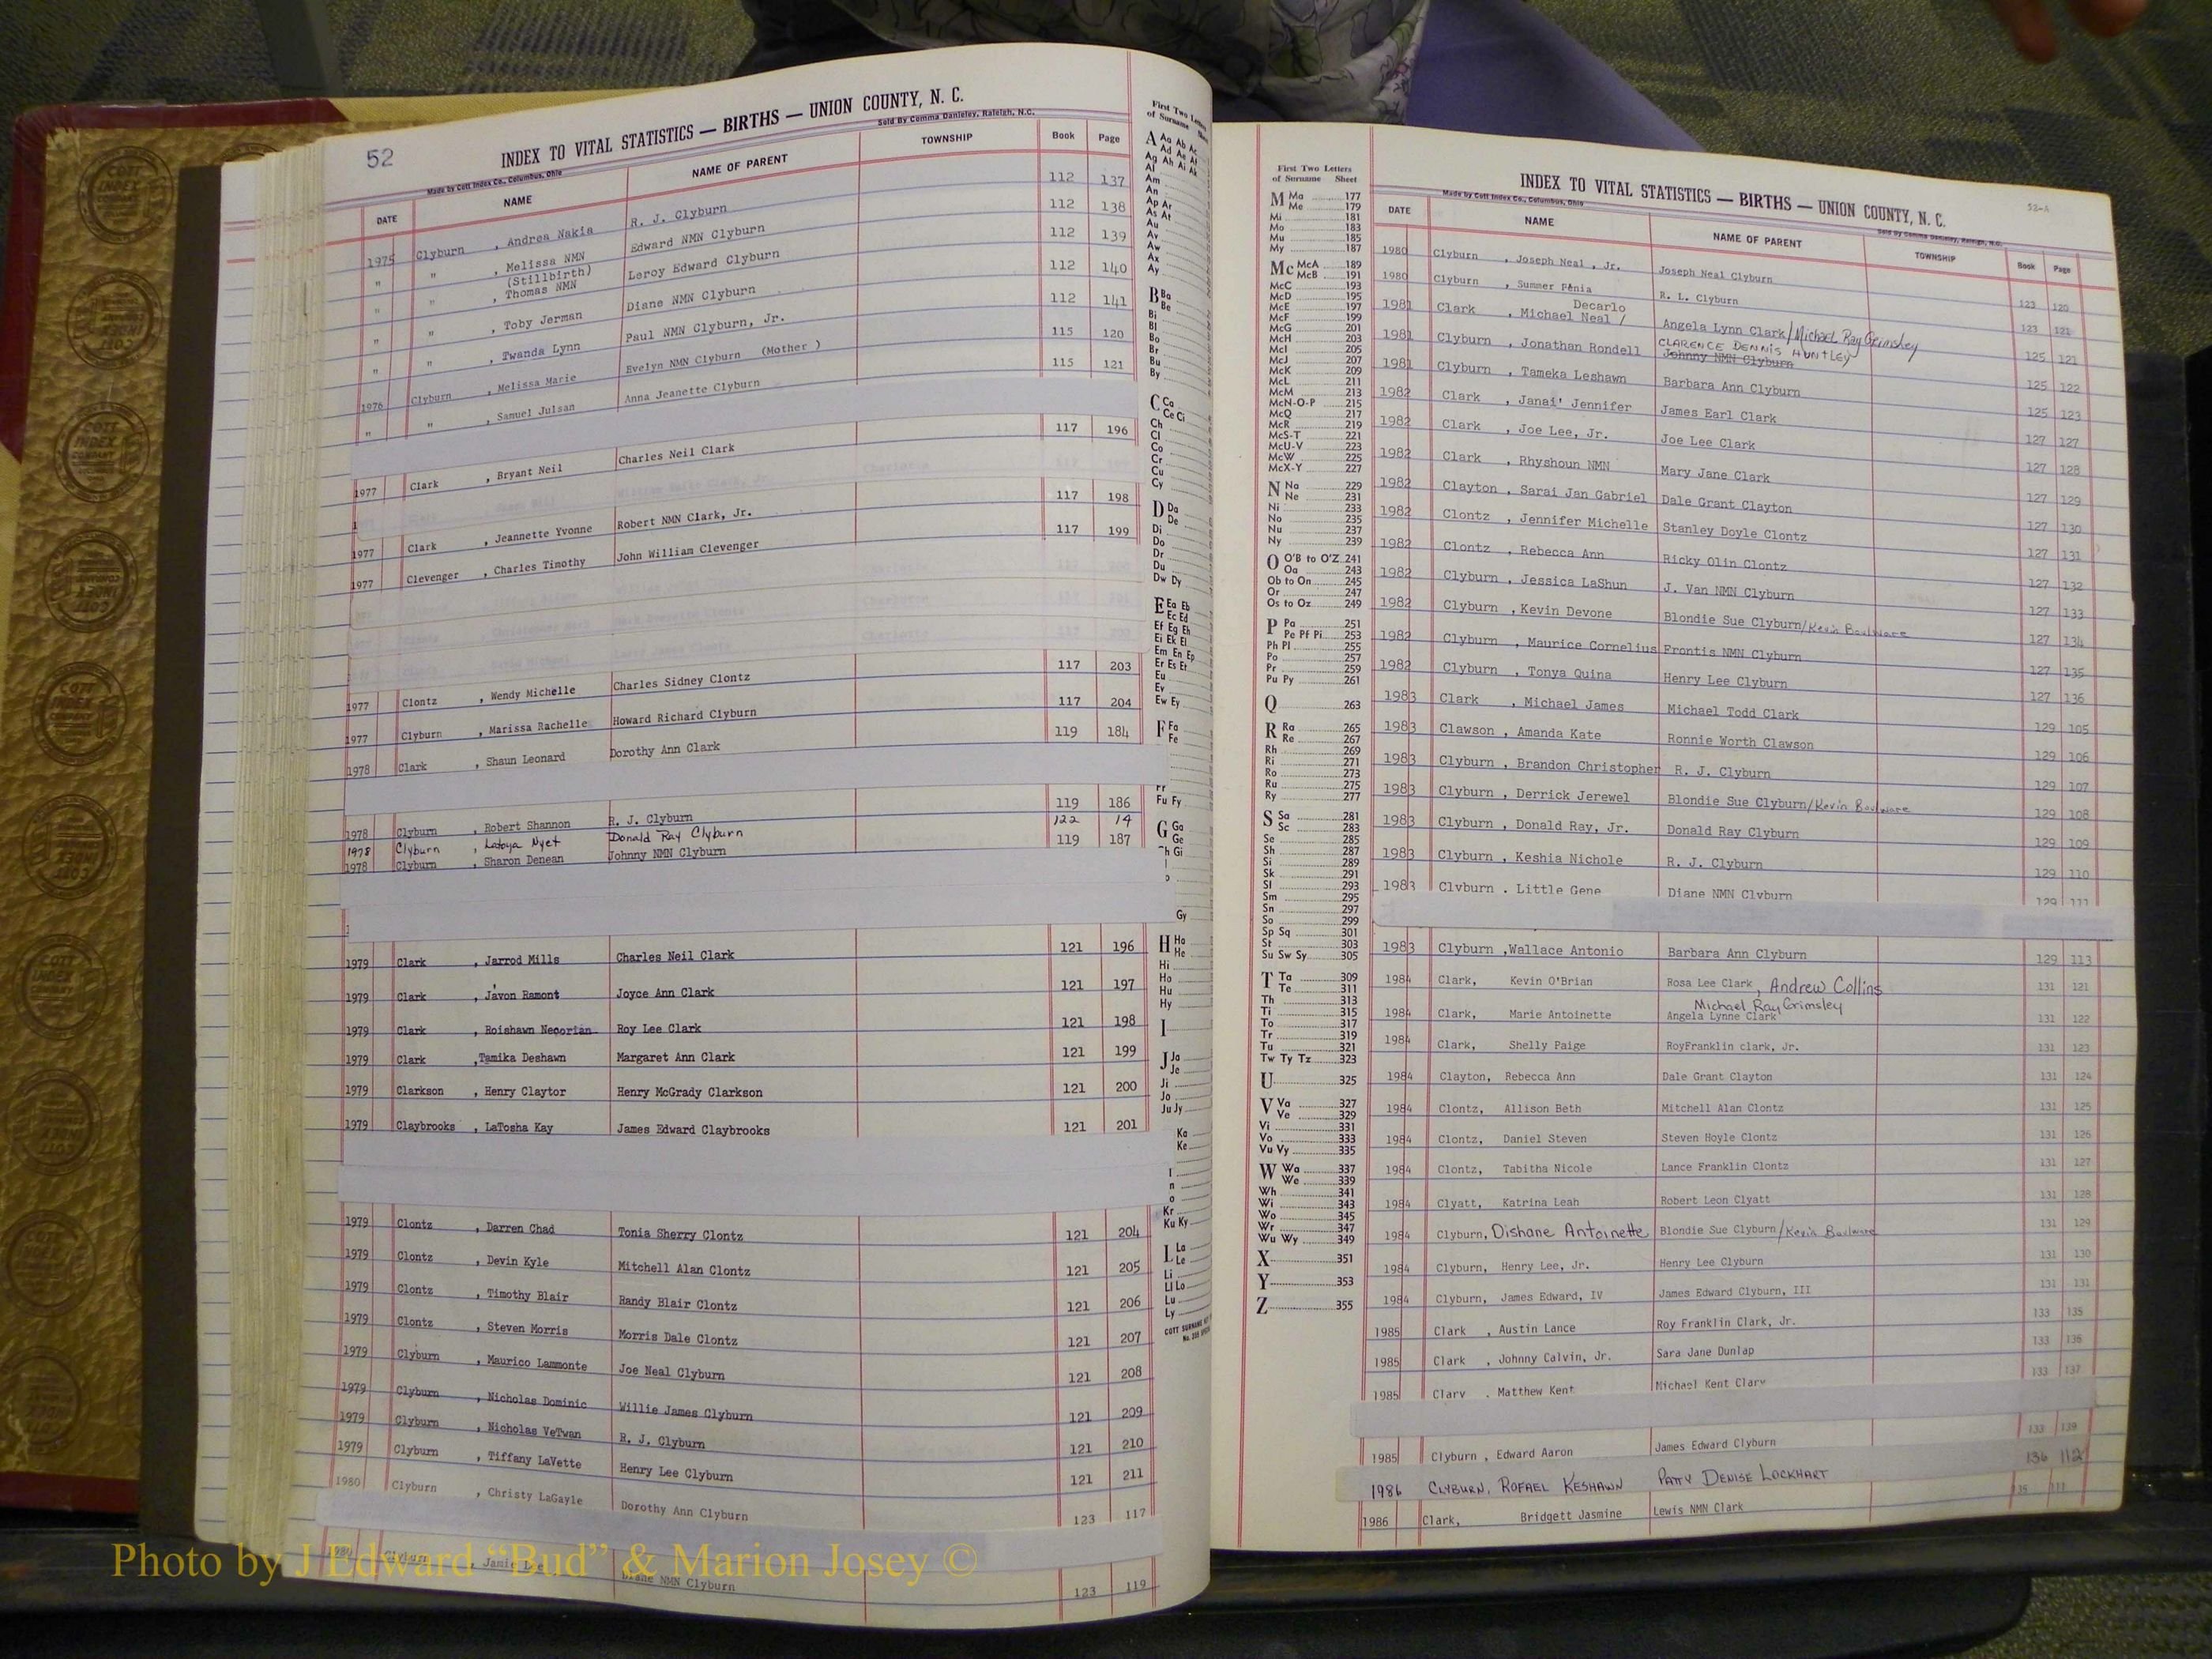 52
INDEX TO VITAL STATISTICS — BIRTHS — UNION COUNTY, N. C.
Made by Cott Index Co., Columbus, Ohio Sold By Comma Danieley, Raleigh, N.C.
DATE NAME NAME OF PARENT TOWNSHIP Book Page
1975 Clyburn , Andrea Nakia R. J. Clyburn 112 137
" " , Melissa NMN (Stillbirth) Edward NMN Clyburn 112 138
" " , Thomas NMN Leroy Edward Clyburn 112 139
" " , Toby Jerman Diane NMN Clyburn 112 140
" " , Twanda Lynn Paul NMN Clyburn, Jr. 112 141
1976 Clyburn , Melissa Marie Evelyn NMN Clyburn (Mother ) 115 120
" " , Samuel Julsan Anna Jeanette Clyburn 115 121
1977 Clark , Bryant Neil Charles Neil Clark 117 196
1977 Clark , Jeannette Yvonne Robert NMN Clark, Jr. 117 198
1977 Clevenger , Charles Timothy John William Clevenger 117 199
1977 Clontz , Wendy Michelle Charles Sidney Clontz 117 203
1977 Clyburn , Marissa Rachelle Howard Richard Clyburn 117 204
1978 Clark , Shaun Leonard Dorothy Ann Clark 119 184
1978 Clyburn , Robert Shannon R. J. Clyburn 119 186
1978 Clyburn , Latoya Nyet Donald Ray Clyburn 122 14
1978 Clyburn , Sharon Denean Johnny NMN Clyburn 119 187
1979 Clark , Jarrod Mills Charles Neil Clark 121 196
1979 Clark , Javon Ramont Joyce Ann Clark 121 197
1979 Clark , Roishawn Necorian Roy Lee Clark 121 198
1979 Clark ,Tamika Deshawn Margaret Ann Clark 121 199
1979 Clarkson , Henry Claytor Henry McGrady Clarkson 121 200
1979 Claybrooks , LaTosha Kay James Edward Claybrooks 121 201
1979 Clontz , Darren Chad Tonia Sherry Clontz 121 204
1979 Clontz , Devin Kyle Mitchell Alan Clontz 121 205
1979 Clontz , Timothy Blair Randy Blair Clontz 121 206
1979 Clontz , Steven Morris Morris Dale Clontz 121 207
1979 Clyburn , Maurico Lammonte Joe Neal Clyburn 121 208
1979 Clyburn , Nicholas Dominic Willie James Clyburn 121 209
1979 Clyburn , Nicholas VeTwan R. J. Clyburn 121 210
1979 Clyburn , Tiffany LaVette Henry Lee Clyburn 121 211
1980 Clyburn , Christy LaGayle Dorothy Ann Clyburn 123 117
1980 Clyburn , Jamie Lee Diane NMN Clyburn 123 119
Photo by J Edward "Bud" & Marion Josey ©
First Two Letters
of Surname
A Aa Ab Ac
Ad Ae Af
Ag Ah Ai Ak
Al
Am
An
Ap Ar
As At
Au
Av
Aw
Ax
Ay
B Ba
Be
Bi
Bl
Bo
Br
Bu
By
C Ca
Ce Ci
Ch
Cl
Co
Cr
Cu
Cy
D Da
De
Di
Do
Dr
Du
Dw Dy
E Ea Eb
Ec Ed
Ef Eg Eh
Ei Ek El
Em En Ep
Er Es Et
Eu
Ev
Ew Ey
F Fa
Fe
Fu Fy
G Ga
Ge
Gh Gi
Gy
H Ha
He
Hi
Ho
Hu
Hy
I
J Ja
Je
Ji
Jo
Ju Jy
Ka
Ke
Kr
Ku Ky
L La
Le
Li
Ll Lo
Lu
Ly
First Two Letters
of Surname Sheet
M Ma 177
Me 179
Mi 181
Mo 183
Mu 185
My 187
Mc McA 189
McB 191
McC 193
McD 195
McE 197
McF 199
McG 201
McH 203
McI 205
McJ 207
McK 209
McL 211
McM 213
McN-O-P 215
McQ 217
McR 219
McS-T 221
McU-V 223
McW 225
McX-Y 227
N Na 229
Ne 231
Ni 233
No 235
Nu 237
Ny 239
O O'B to O'Z 241
Oa 243
Ob to On 245
Or 247
Os to Oz 249
P Pa 251
Pe Pf Pi 253
Ph Pl 255
Po 257
Pr 259
Pu Py 261
Q 263
R Ra 265
Re 267
Rh 269
Ri 271
Ro 273
Ru 275
Ry 277
S Sa 281
Sc 283
Se 285
Sh 287
Si 289
Sk 291
Sl 293
Sm 295
Sn 297
So 299
Sp Sq 301
St 303
Su Sw Sy 305
T Ta 309
Te 311
Th 313
Ti 315
To 317
Tr 319
Tu 321
Tw Ty Tz 323
U 325
V Va 327
Ve 329
Vi 331
Vo 333
Vu Vy 335
W Wa 337
We 339
Wh 341
Wi 343
Wo 345
Wr 347
Wu Wy 349
X 351
Y 353
Z 355
52-A
INDEX TO VITAL STATISTICS — BIRTHS — UNION COUNTY, N. C.
Made by Cott Index Co., Columbus, Ohio Sold By Comma Danieley, Raleigh, N.C.
DATE NAME NAME OF PARENT TOWNSHIP Book Page
1980 Clyburn , Joseph Neal , Jr. Joseph Neal Clyburn 123 120
1980 Clyburn , Summer Penia R. L. Clyburn 123 121
1981 Clark , Michael Neal / Decarlo Angela Lynn Clark/Michael Ray Grimsley 125 121
1981 Clyburn , Jonathan Rondell CLARENCE DENNIS HUNTLEY Johnny NMN Clyburn 125 122
1981 Clyburn , Tameka Leshawn Barbara Ann Clyburn 125 123
1982 Clark , Janai' Jennifer James Earl Clark 127 127
1982 Clark , Joe Lee, Jr. Joe Lee Clark 127 128
1982 Clark , Rhyshoun NMN Mary Jane Clark 127 129
1982 Clayton , Sarai Jan Gabriel Dale Grant Clayton 127 130
1982 Clontz , Jennifer Michelle Stanley Doyle Clontz 127 131
1982 Clontz , Rebecca Ann Ricky Olin Clontz 127 132
1982 Clyburn , Jessica LaShun J. Van NMN Clyburn 127 133
1982 Clyburn , Kevin Devone Blondie Sue Clyburn/Kevin Boulware 127 134
1982 Clyburn , Maurice Cornelius Frontis NMN Clyburn 127 135
1982 Clyburn , Tonya Quina Henry Lee Clyburn 127 136
1983 Clark , Michael James Michael Todd Clark 129 105
1983 Clawson , Amanda Kate Ronnie Worth Clawson 129 106
1983 Clyburn , Brandon Christopher R. J. Clyburn 129 107
1983 Clyburn , Derrick Jerewel Blondie Sue Clyburn/Kevin Boulware 129 108
1983 Clyburn , Donald Ray, Jr. Donald Ray Clyburn 129 109
1983 Clyburn , Keshia Nichole R. J. Clyburn 129 110
1983 Clyburn . Little Gene Diane NMN Clyburn 129 111
1983 Clyburn ,Wallace Antonio Barbara Ann Clyburn 129 113
1984 Clark, Kevin O'Brian Rosa Lee Clark , Andrew Collins 131 121
1984 Clark, Marie Antoinette Michael Ray Grimsley Angela Lynne Clark 131 122
1984 Clark, Shelly Paige RoyFranklin clark, Jr. 131 123
1984 Clayton, Rebecca Ann Dale Grant Clayton 131 124
1984 Clontz, Allison Beth Mitchell Alan Clontz 131 125
1984 Clontz, Daniel Steven Steven Hoyle Clontz 131 126
1984 Clontz, Tabitha Nicole Lance Franklin Clontz 131 127
1984 Clyatt, Katrina Leah Robert Leon Clyatt 131 128
1984 Clyburn, Dishane Antoinette Blondie Sue Clyburn/Kevin Boulware 131 129
1984 Clyburn, Henry Lee, Jr. Henry Lee Clyburn 131 130
1984 Clyburn, James Edward, IV James Edward Clyburn, III 131 131
1985 Clark , Austin Lance Roy Franklin Clark, Jr. 133 135
1985 Clark , Johnny Calvin, Jr. Sara Jane Dunlap 133 136
1985 Clary . Matthew Kent Michael Kent Clary 133 137
1985 Clyburn , Edward Aaron James Edward Clyburn 133 139
1986 CLYBURN, ROFAEL KESHAWN PATTY DENISE LOCKHART 136 112
1986 Clark, Bridgett Jasmine Lewis NMN Clark 135 111